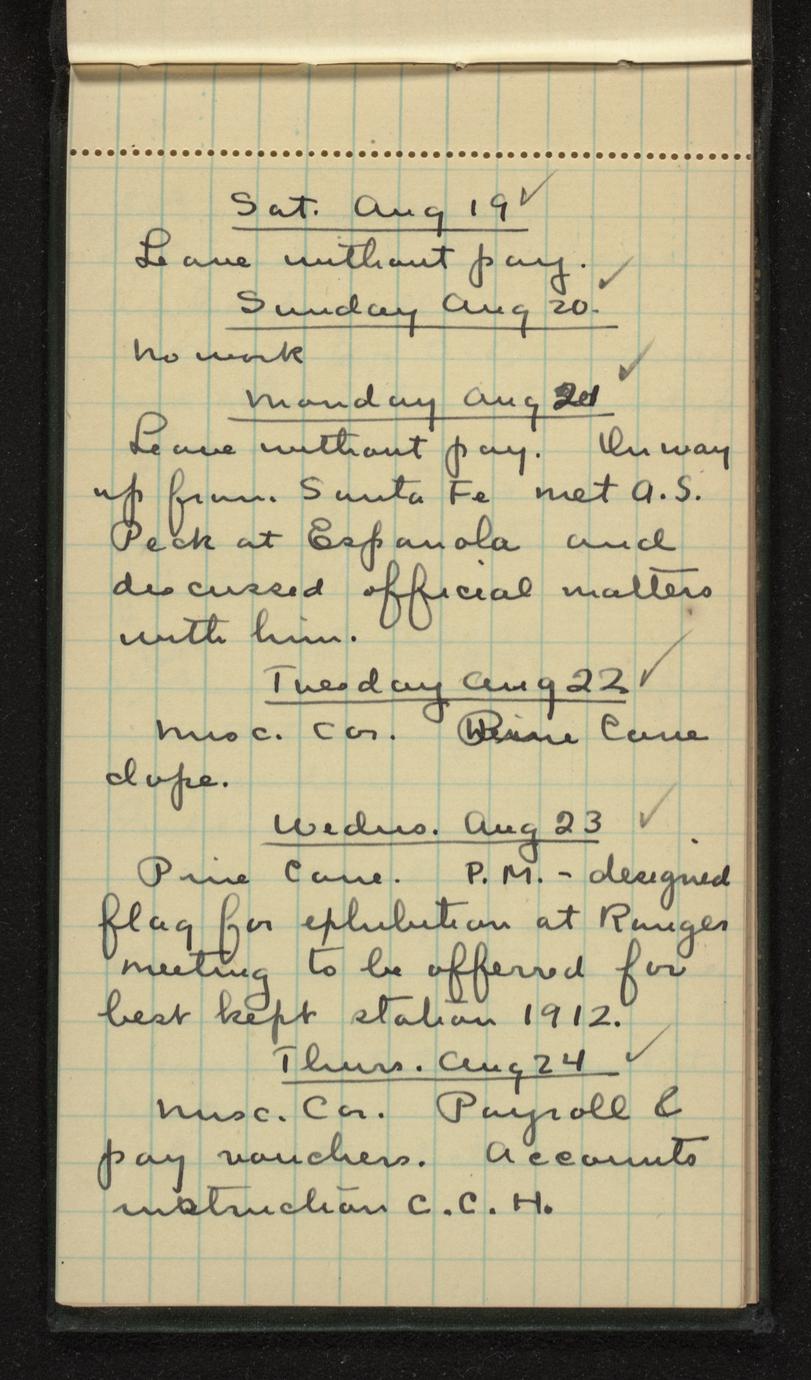 Sat. Aug 19 ✓
Leave without pay.
Sunday Aug 20. ✓
No work
Monday Aug 21 ✓
Leave without pay. On way
up from Santa Fe met A.S.
Peck at Espanola and
discussed official matters
with him.
Tuesday Aug 22 ✓
Misc. Cor. Pine Cone
dope.
Wednes. Aug 23 ✓
Pine Cone. P.M. - designed
flag for exhibition at Ranger
meeting to be offerred for
best kept station 1912.
Thurs. Aug 24 ✓
Misc. Cor. Payroll &
pay vouchers. Accounts
instruction C.C.H.